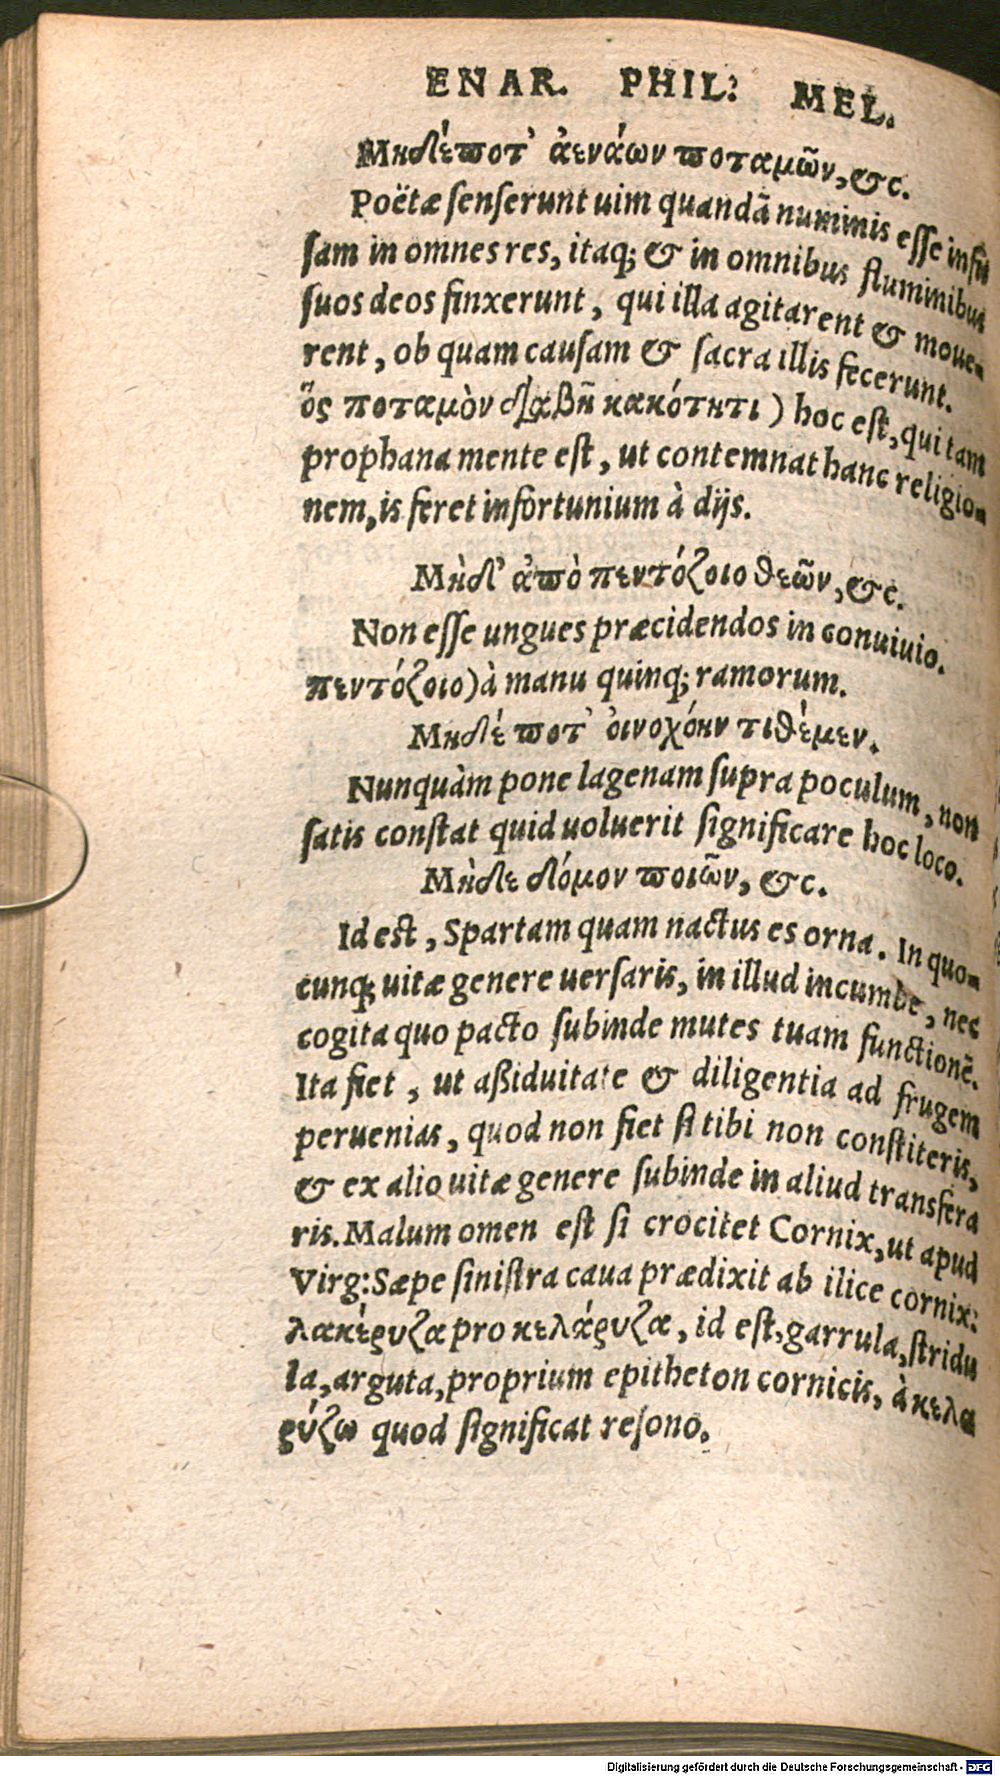 ENAR. PHIL: MEL.
Μηδέποτ᾽ ἀενάων ποταμῶν, &c.
Poëtæ senserunt uim quandã numinis esse infu
sam in omnes res, itaq; & in omnibus fluminibus
suos deos finxerunt, qui illa agitarent & moue-
rent, ob quam causam & sacra illis fecerunt.
ὃς ποταμὸν διαβῇ κακότητι) hoc est, qui tam
prophana mente est, ut contemnat hanc religio-
nem, is feret infortunium à dijs.
Μὴδ᾽ ἀπὸ πεντόζοιο θεῶν, &c.
Non esse ungues præcidendos in conuiuio.
πεντόζοιο) à manu quinq; ramorum.
Μηδέ ποτ᾽ ὀινοχόην τιθέμεν.
Nunquàm pone lagenam supra poculum, non
satis constat quid uoluerit significare hoc loco.
Μὴδε δόμον ποιῶν, &c.
Id est, Spartam quam nactus es orna. In quo-
cunq; uitæ genere uersaris, in illud incumbe, nec
cogita quo pacto subinde mutes tuam functionẽ.
Ita fiet, ut aßiduitate & diligentia ad frugem
peruenias, quod non fiet si tibi non constiteris,
& ex alio uitæ genere subinde in aliud transfera
ris. Malum omen est si crocitet Cornix, ut apud
Virg: Sæpe sinistra caua prædixit ab ilice cornix:
λακέρυζα pro κελάρυζα, id est, garrula, stridu
la, arguta, proprium epitheton cornicis, à κελα
ρύζω quod significat resono.
Digitalisierung gefördert durch die Deutsche Forschungsgemeinschaft - DFG